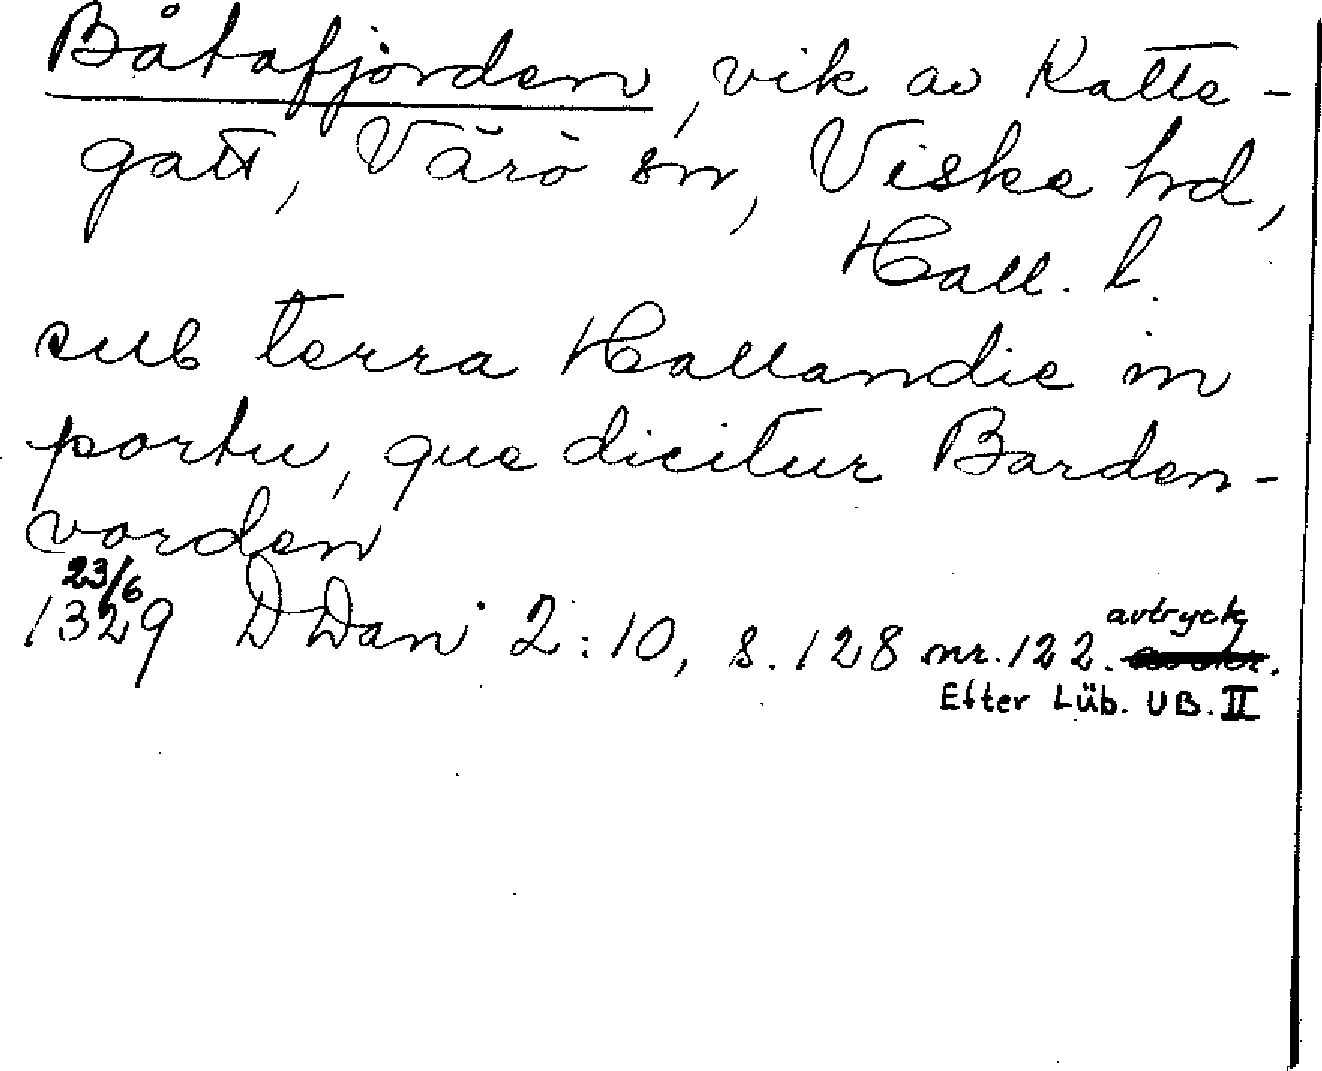 Båtafjorden, vik av Katte-
gatt, Värö sn, Viske hd,
Hall. l.
sub terra Hallandie in
portu, que dicitur Barden-
vorden
23/6
1329 DDan 2:10, s. 128 nr. 122. avtryck.
Efter Lüb. UB. II